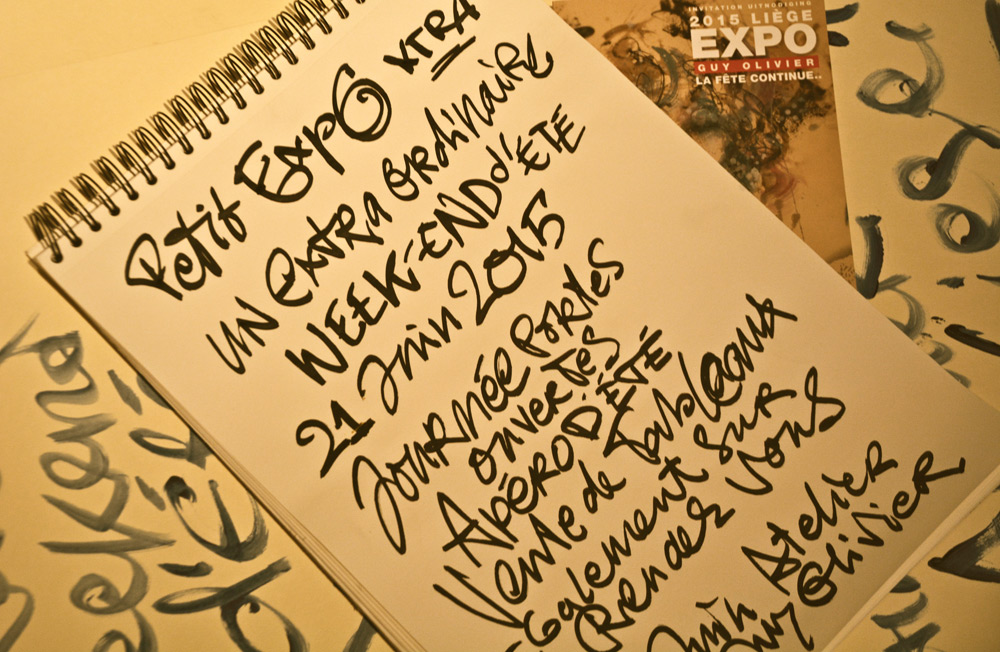 Petit Expo XTRA
UN EXTRA ORdiNaiRE
WEEK-END d'ÉTÉ
21 Juin 2015
JOURNÉE PORtes
ouvertes
APÉRO D'ÉTÉ
Vente de Tableaux
Egalement sur
Rendez Vous
Juin Atelier
Guy Olivier
INVITATION UITNODIGING
2015 LIÈGE
EXPO
GUY OLIVIER
LA FÊTE CONTINUE..
weekend
d'été